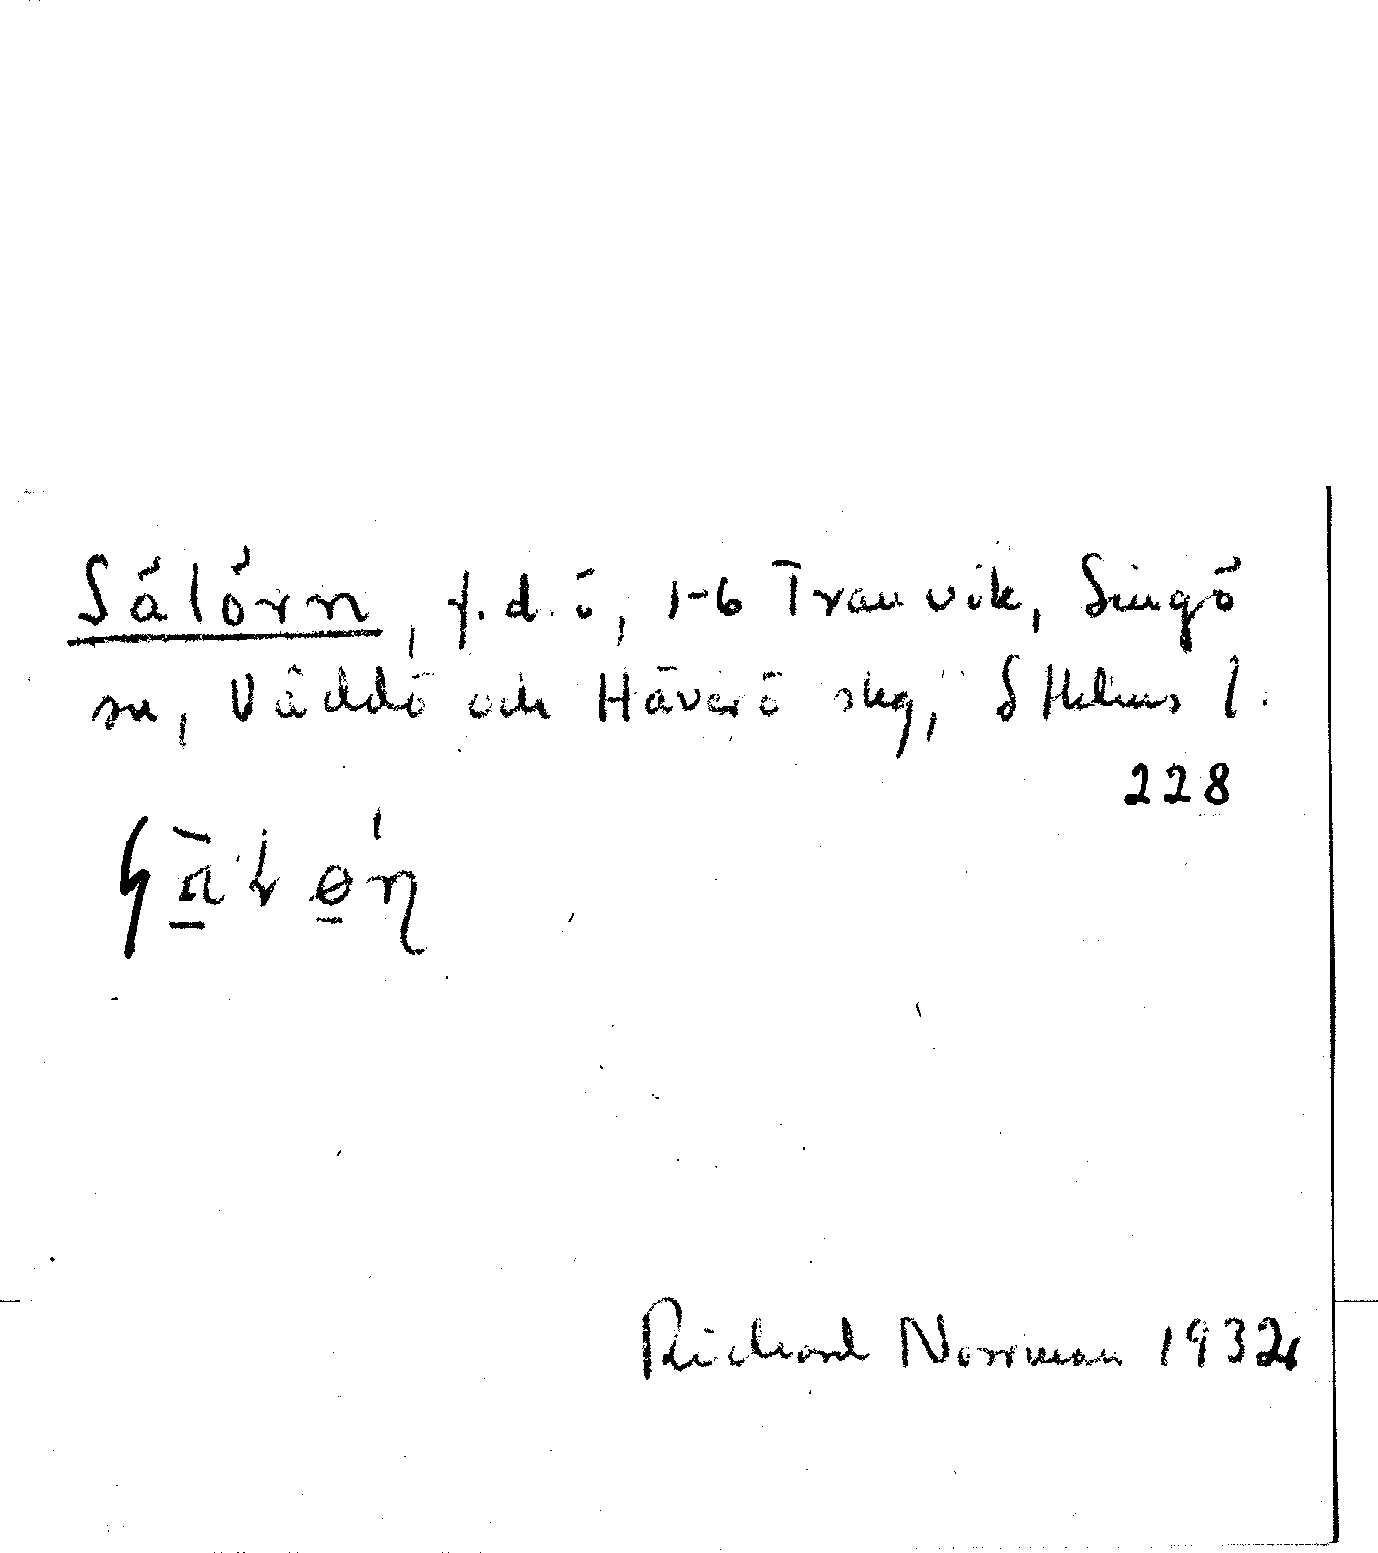 Sälörn, f.d. ö, 1-6 Tranvik, Singö
sn, Väddö och Häverö skg, Sthlms l.
228
Richard Norrman 1932